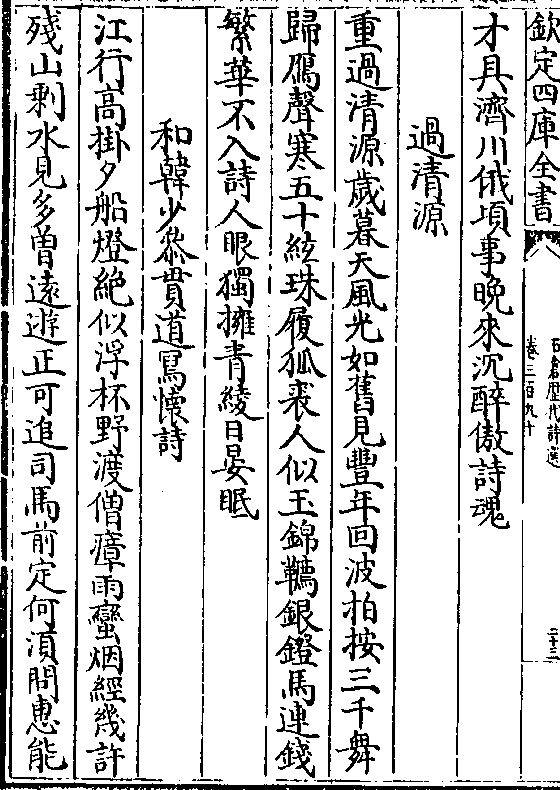 欽定四庫全書
石倉歷代詩選
卷三百九十
二十三
才具濟川俄頃事晚來沉醉傲詩魂
過清源
重過清源歲暮天風光如舊見豐年回波柏按三千舞
歸鴈聲寒五十絃珠履狐裘人似玉錦韉銀鐙馬連錢
繁華不入詩人眼獨擁青綾日晏眠
和韓少叅貫道寫懷詩
江行高掛夕船燈絶似浮杯野渡僧瘴雨蠻烟經幾許
殘山剩水見多曽逺遊正可追司馬前定何湏問恵能